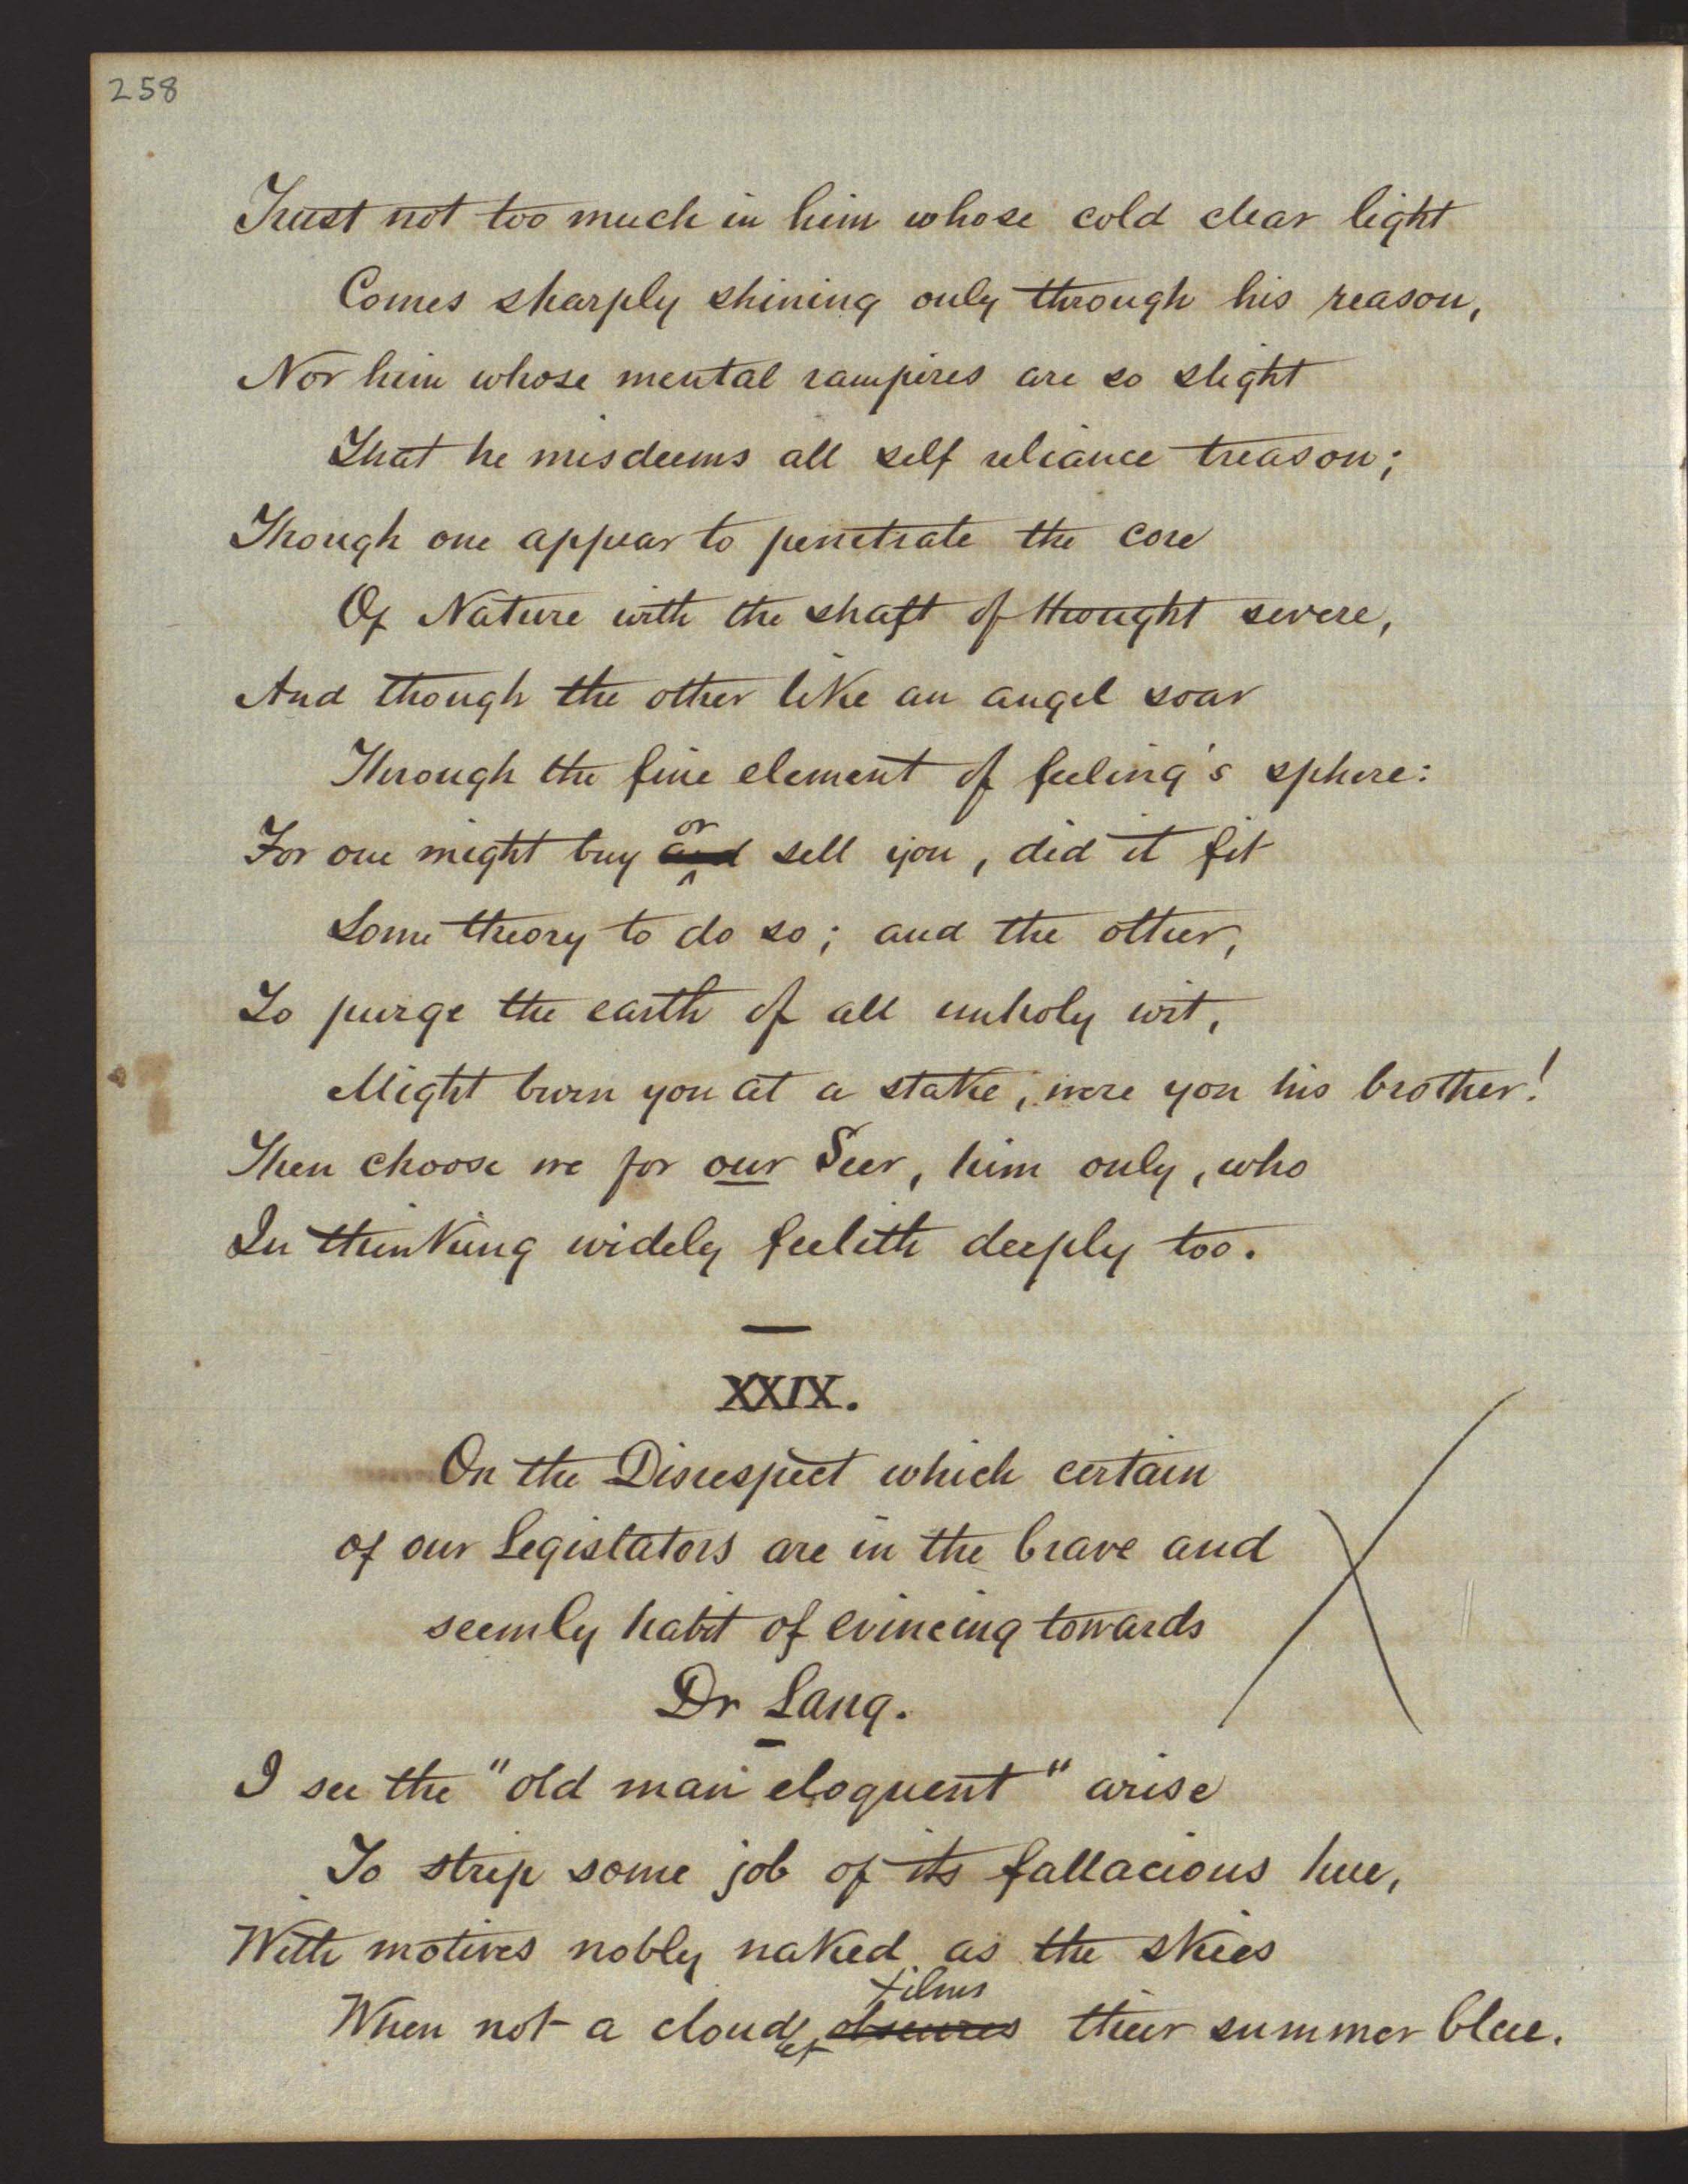 258
Trust not too much in him whose cold clear light
Comes sharply shining only through his reason,
Nor him whose mental rampires are so slight
That he misdeems all self reliance treason;
Though one appear to penetrate the core
Of Nature with the shaft of thought severe,
And though the other like an angel soar
Through the fine element of feeling's sphere:
or
For one might buy and sell you, did it fit
Some theory to do so; and the other,
To purge the earth of all unholy wit,
Might burn you at a stake, were you his brother!
Then choose we for our Seer, him only, who
In thinking widely feeleth deeply too.
XXIX.
On the Disrespect which certain
of our Legislators are in the brave and
seemly habit of evincing towards
Dr Lang.
I see the "old man eloquent" arise
To strip some job of its fallacious hue,
With motives nobly naked as the skies
films
When not a cloud obscures their summer blue.
let